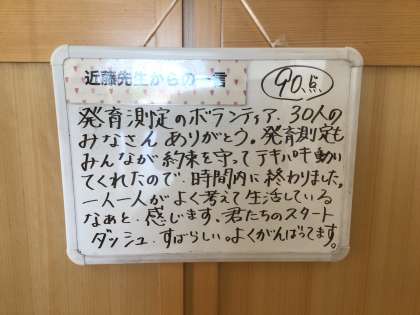 近藤先生からの一言
90点
発育測定のボランティア、30人の
みなさんありがとう。発育測定も
みんなが約束を守ってテキパキ動い
てくれたので、時間内に終わりました。
一人一人がよく考えて生活している
なあと、感じます、君たちのスタート
ダッシュ、すばらしい。よくがんばってます。